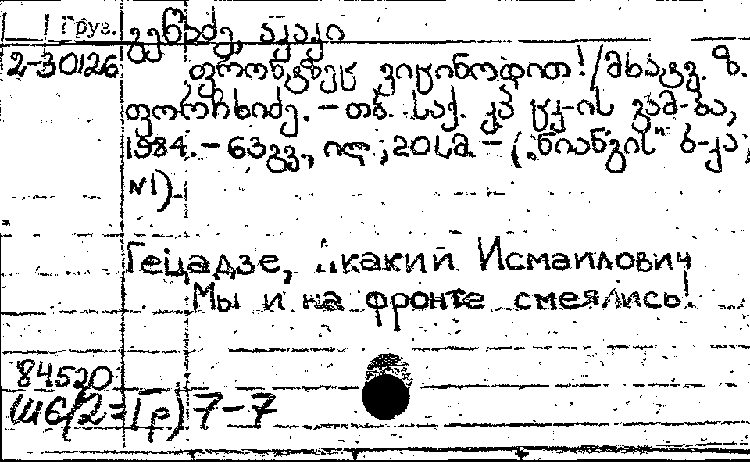 Груз. გეწაძე, აკაკი
2-30126 ფრონტზეც ვიცინოდით!/მხატვ. ზ.
ფორჩხიძე. – თბ. საქ. კპ ცკ-ის გამ-ბა,
1984. – 63გვ., ილ.; 20სმ. – („ნიანგის" ბ-კა;
№1).
Гецадзе, Акакий Исмаилович
Мы и на фронте смеялись!
84520
Ш6(2=Гр)7-7